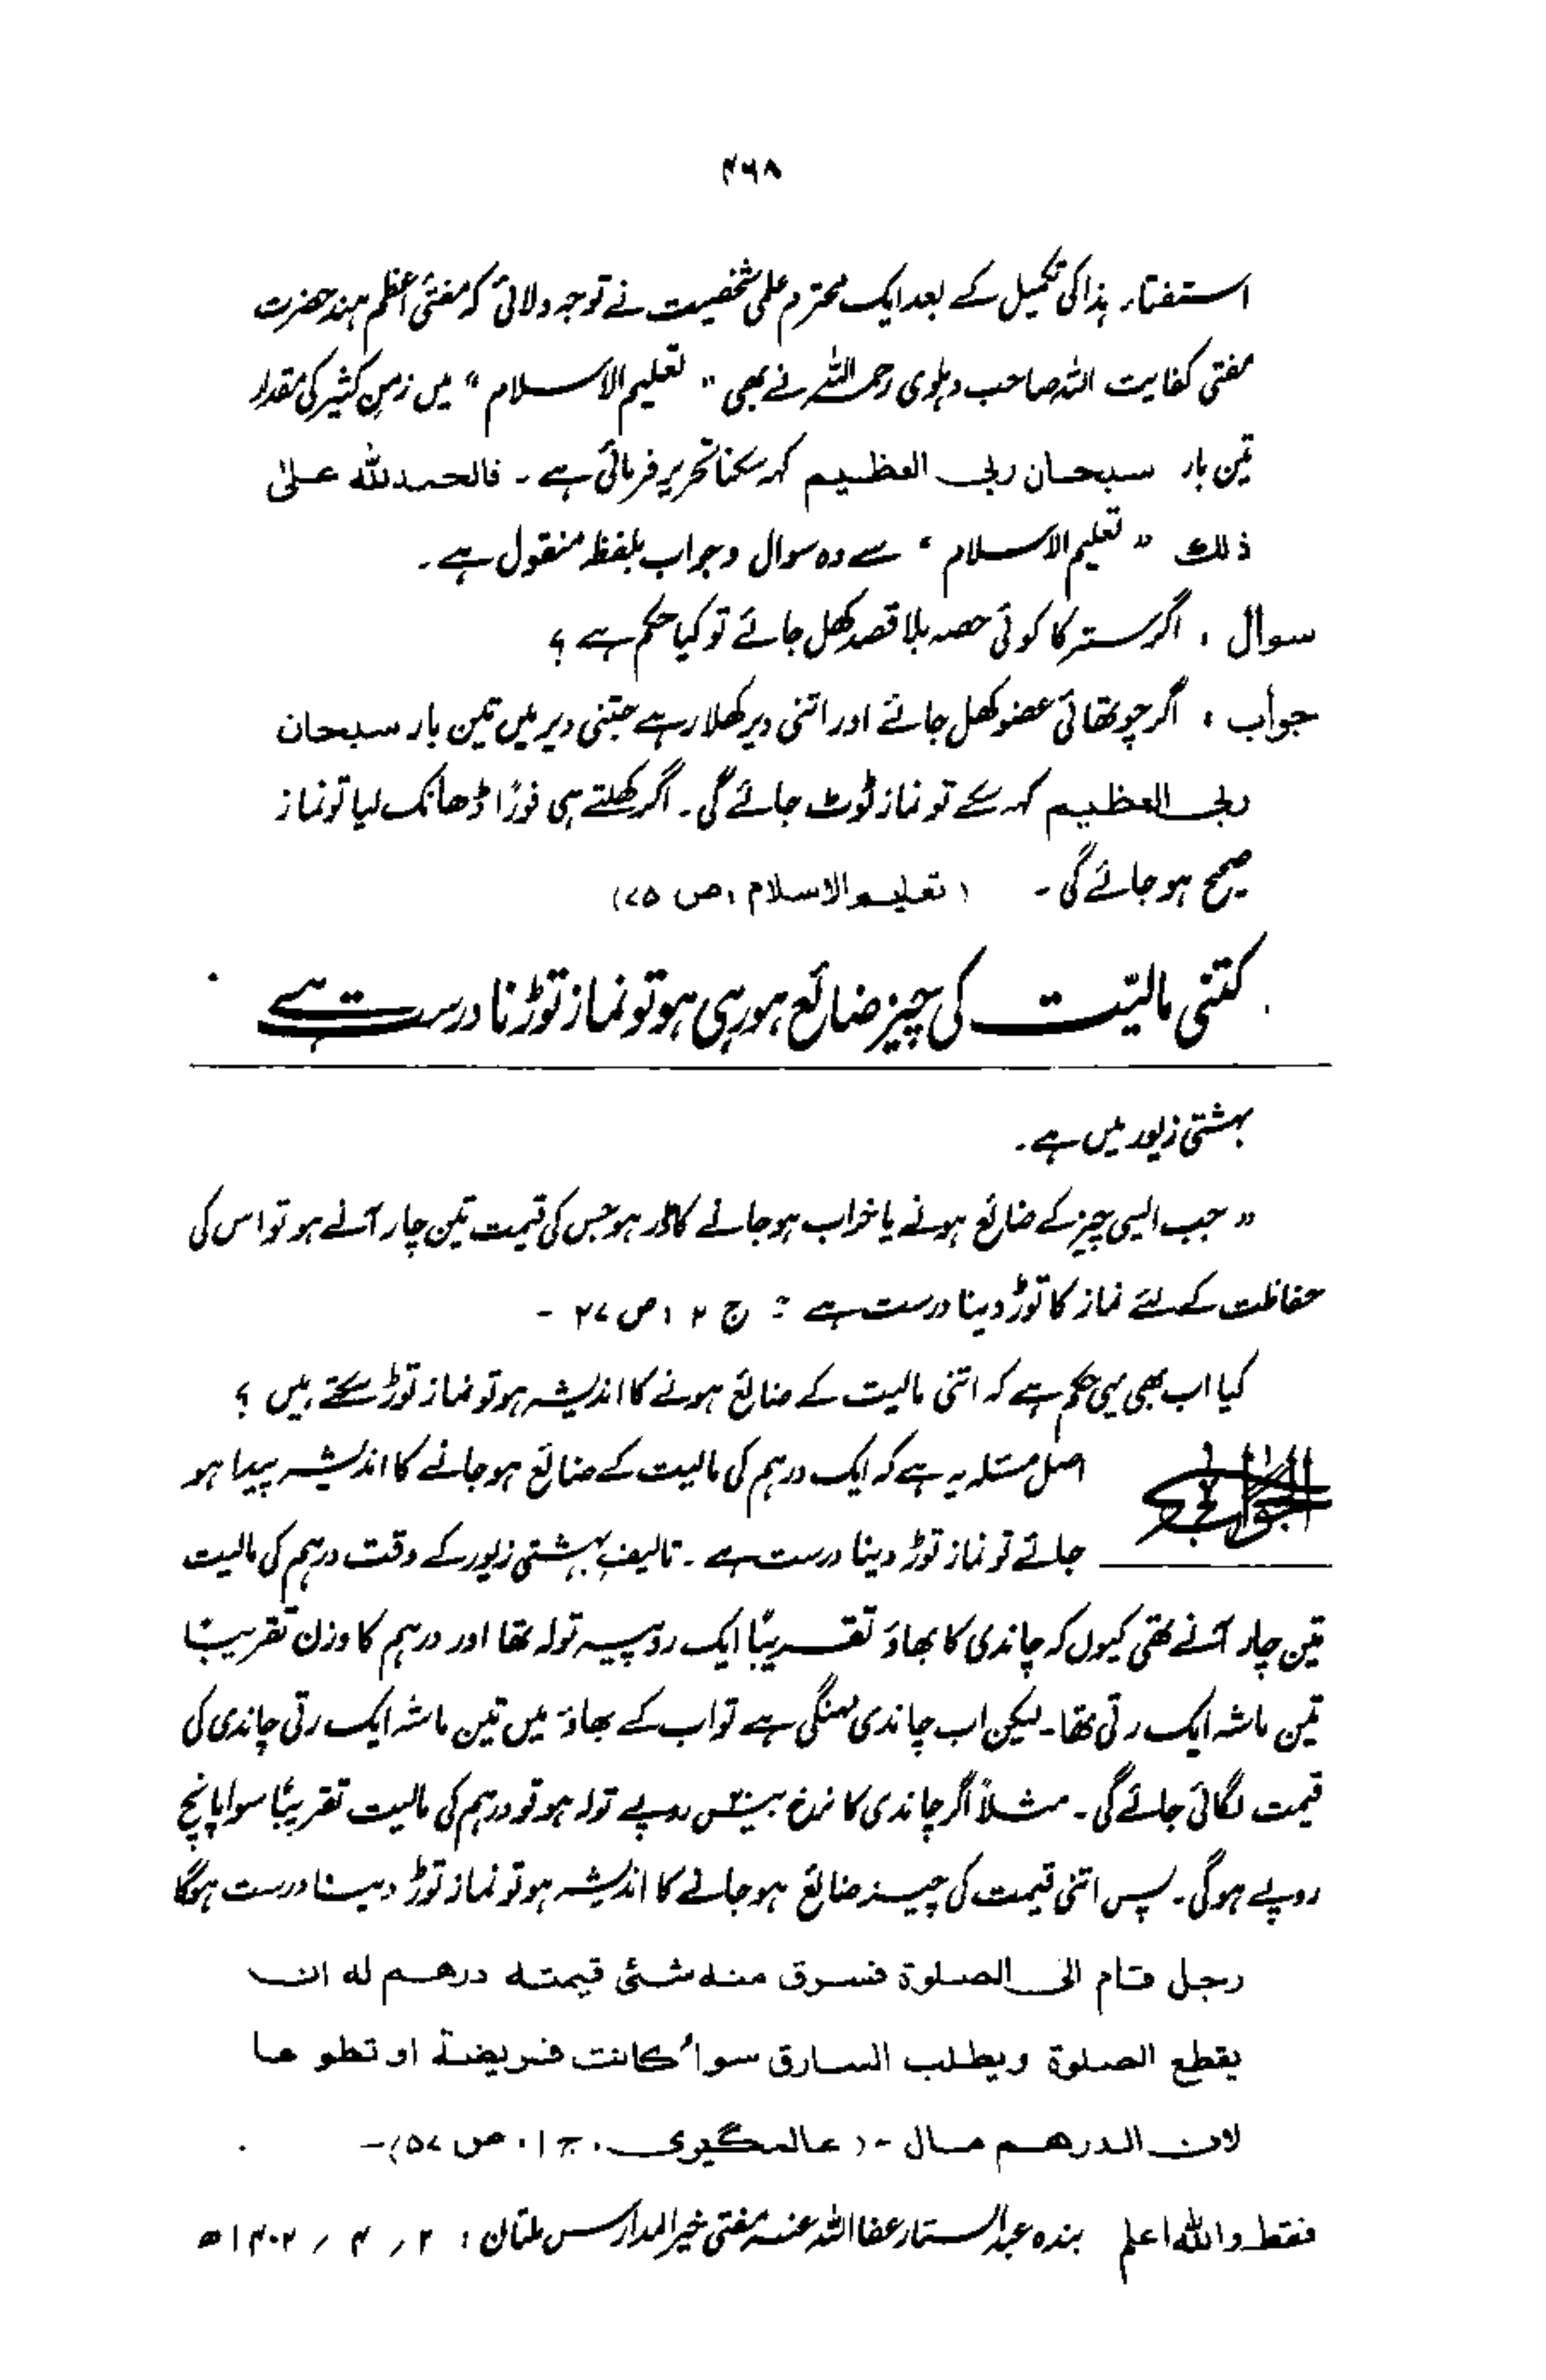 ۴۶۸
استفتاء ہذا کی تکمیل کے بعد ایک محترم علمی شخصیت نے توجہ دلائی کہ مفتئ اعظم ہند حضرت
مفتی کفایت اللہ صاحب دہلوی رحمہ اللہ نے بھی " تعلیم الاسلام " میں زمن کثیر کی مقدار
تین بار سبحان ربی العظیم کہہ سکنا تحریر فرمائی ہے ۔ فالحمد للہ علیٰ
ذلک " تعلیم الاسلام " سے وہ سوال و جواب بلفظہٖ منقول ہے ۔
سوال ، اگر ستر کا کوئی حصہ بلا قصد کھل جائے تو کیا حکم ہے ؟
جواب ، اگر چوتھائی عضو کھل جائے اور اتنی دیر کھلا رہے جتنی دیر میں تین بار سبحان
ربی العظیم کہہ سکے تو نماز ٹوٹ جائے گی ۔ اگر کھلتے ہی فورًا ڈھانک لیا تو نماز
صحیح ہو جائے گی ۔ ( تعلیم الاسلام ، ص ۷۵ )
کتنی مالیّت کی چیز ضائع ہو رہی ہو تو نماز توڑنا درست ہے
بہشتی زیور میں ہے ۔
" جب ایسی چیز کے ضائع ہونے یا خراب ہو جانے کا ڈر ہو جس کی قیمت تین چار آنے ہو تو اس کی
حفاظت کے لئے نماز کا توڑ دینا درست ہے " ج ۲ ، ص ۲۷ -
کیا اب بھی یہی حکم ہے کہ اتنی مالیت کے ضائع ہونے کا اندیشہ ہو تو نماز توڑ سکتے ہیں ؟
الجواب اصل مسئلہ یہ ہے کہ ایک درہم کی مالیت کے ضائع ہو جانے کا اندیشہ پیدا ہو
جائے تو نماز توڑ دینا درست ہے ۔ تالیفِ بہشتی زیور کے وقت درہم کی مالیت
تین چار آنے تھی کیوں کہ چاندی کا بھاؤ تقریبًا ایک روپیہ تولہ تھا اور درہم کا وزن تقریبًا
تین ماشہ ایک رتی تھا ۔ لیکن اب چاندی مہنگی ہے تو اب کے بھاؤ میں تین ماشہ ایک رتی چاندی کی
قیمت لگائی جائے گی ۔ مثلاً اگر چاندی کا نرخ بیس روپے تولہ ہو تو درہم کی مالیت تقریبًا سوا پانچ
روپے ہوگی ۔ پس اتنی قیمت کی چیز ضائع ہو جانے کا اندیشہ ہو تو نماز توڑ دینا درست ہوگا
رجل قام الی الصلوۃ فسرق منہ شئی قیمتہ درھم لہ ان
یقطع الصلوۃ ویطلب السارق سواءً کانت فریضۃ او تطوعا
لان الدرھم مال - ( عالمگیری ، ج ۱ ، ص ۵۷ ) -
فقط واللہ اعلم بندہ عبدالستار عفا اللہ عنہ مفتی خیر المدارس ملتان : ۲ / ۴ / ۱۴۰۲ ھ